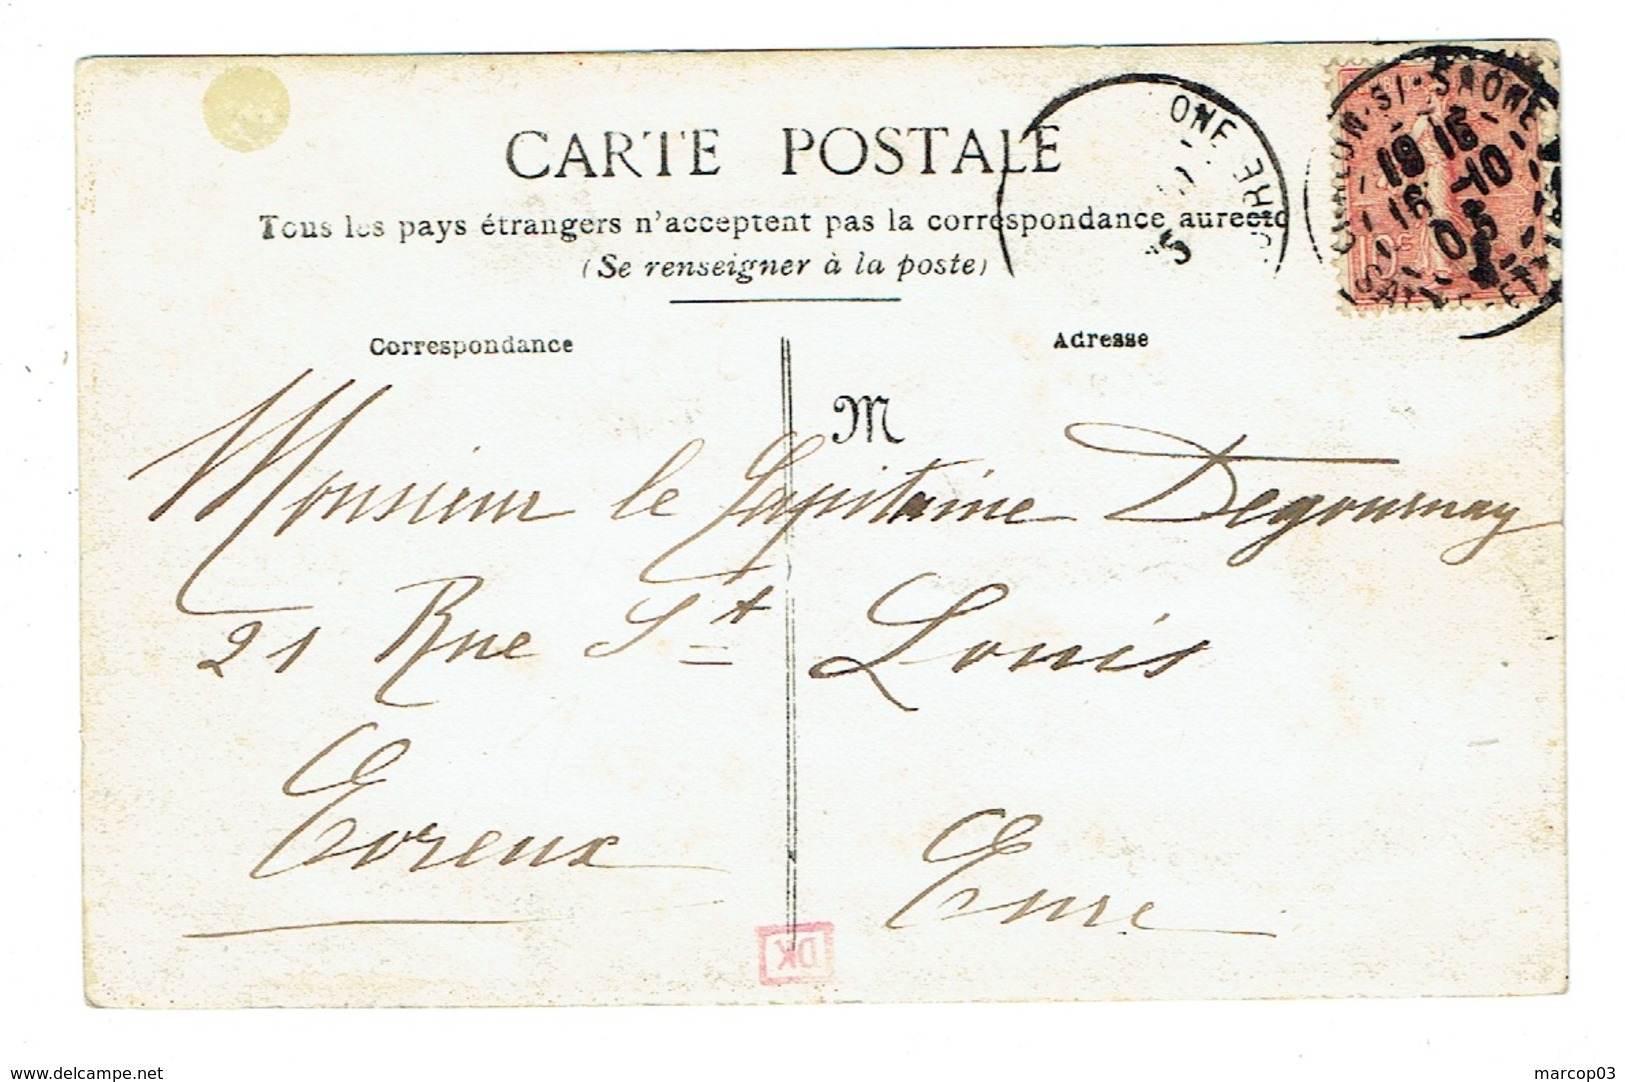 CARTE POSTALE
Tous les pays étrangers n'acceptent pas la correspondance au recto
(Se renseigner à la poste)
Correspondance
Adresse
M
Monsieur le Capitaine Degournay
21 Rue St Louis
Evreux
Eure
CHALON-S/-SAONE
19 15
15 -10
05
ONE
DK
www.delcampe.net
marcop03